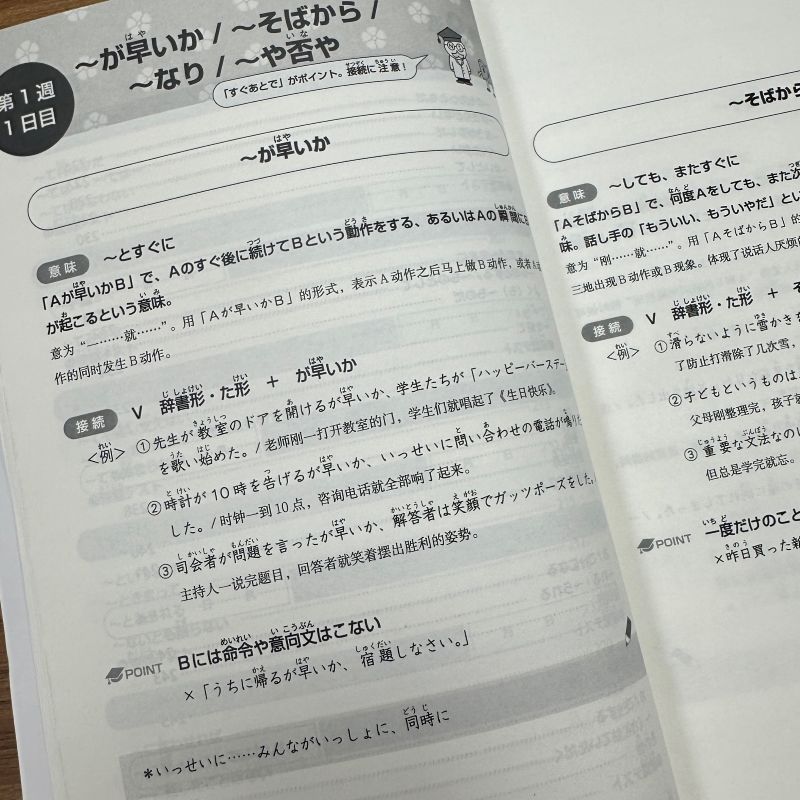 第1週
1日目
～が早いか / ～そばから /
～なり / ～や否や
「すぐあとで」がポイント。接続に注意！
～が早いか
意味 ～とすぐに
「Aが早いかB」で、Aのすぐ後に続けてBという動作をする、あるいはAの瞬間にB
が起こるという意味。
意为“一……就……”。用「Aが早いかB」的形式，表示A动作之后马上做B动作，或者A
作的同时发生B动作。
接続 V 辞書形・た形 + が早いか
<例> ①先生が教室のドアを開けるが早いか、学生たちが「ハッピーバースデー
を歌い始めた。/ 老师刚一打开教室的门，学生们就唱起了《生日快乐》。
②時計が10時を告げるが早いか、いっせいに問い合わせの電話が鳴り
した。/ 时钟一到10点，咨询电话就全部响了起来。
③司会者が問題を言ったが早いか、解答者は笑顔でガッツポーズをした。
主持人一说完题目，回答者就笑着摆出胜利的姿势。
POINT Bには命令や意向文はこない
×「うちに帰るが早いか、宿題しなさい。」
*いっせいに……みんながいっしょに、同時に
～そばから
意味 ～しても、またすぐに
「AそばからB」で、何度Aをしても、また次
味。話し手の「もういい、もういやだ」とい
意为“刚……就……”。用「AそばからB」的
三地出现B动作或B现象。体现了说话人厌烦的
接続 V 辞書形・た形 + そ
<例> ①滑らないように雪かきを
了防止打滑除了几次雪，
②子どもというものは、
父母刚整理完，孩子就
③重要な文法なのに
但总是学完就忘。
POINT 一度だけのこと
×昨日買った新